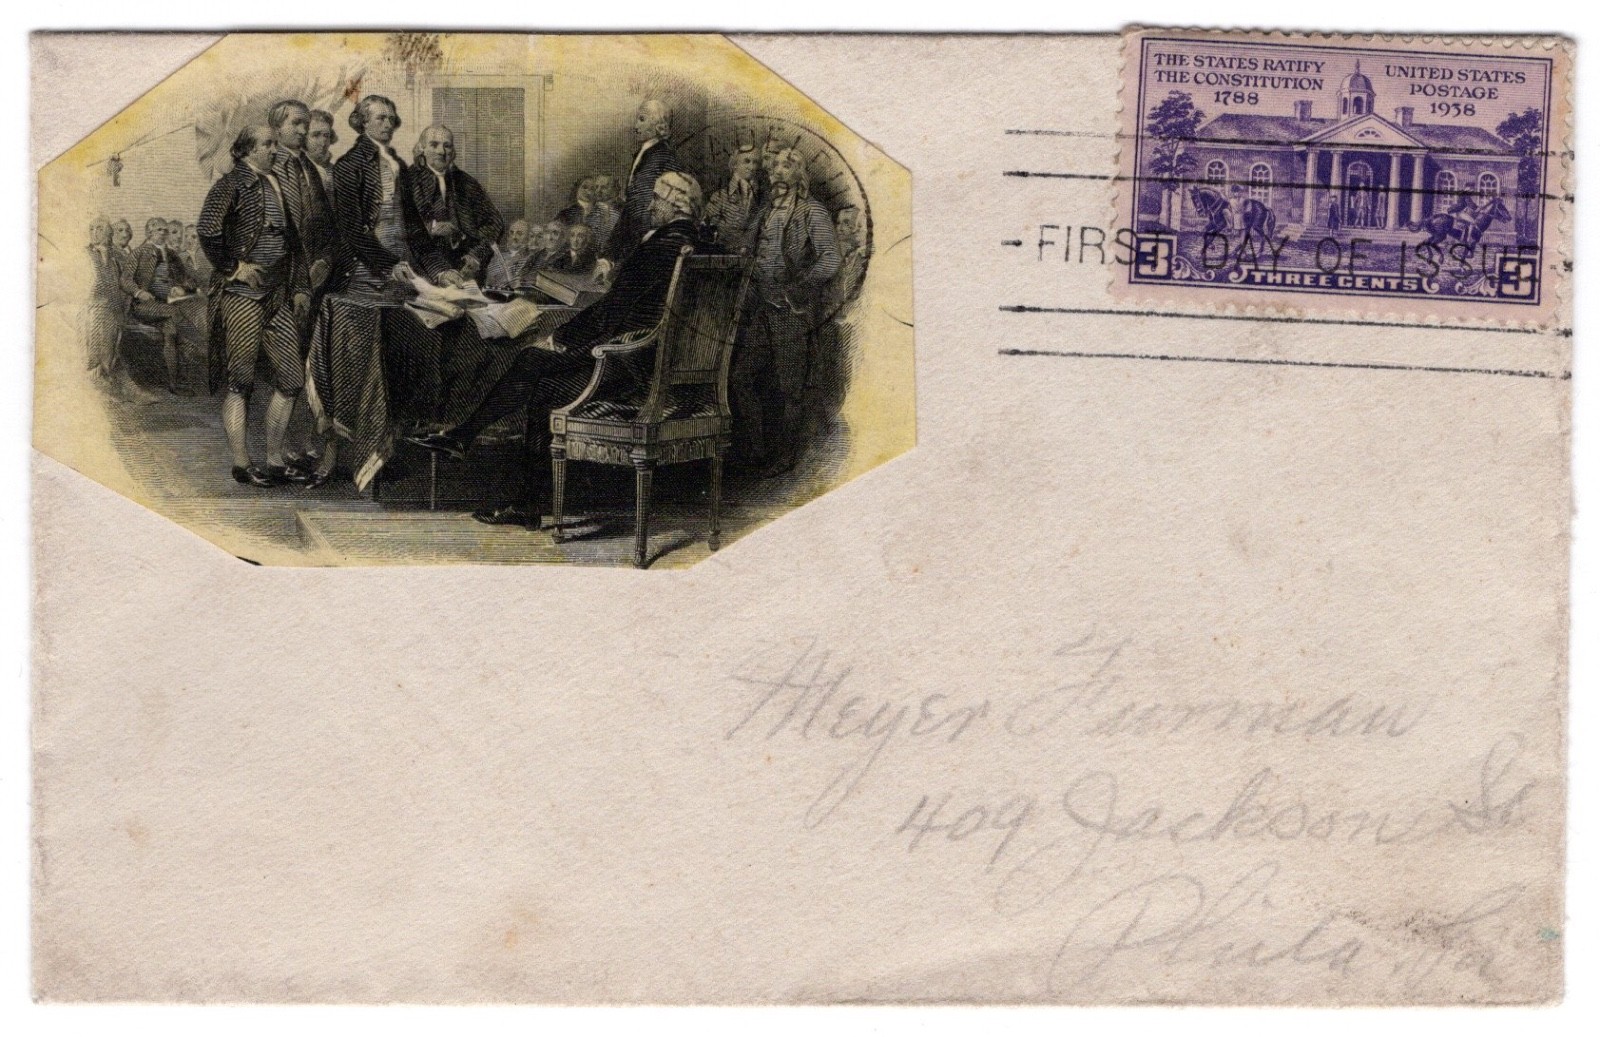 THE STATES RATIFY
THE CONSTITUTION
1788
UNITED STATES
POSTAGE
1938
- FIRST DAY OF ISSUE -
3 THREE CENTS 3
Meyer Furman
409 Jackson St
Phila. Pa